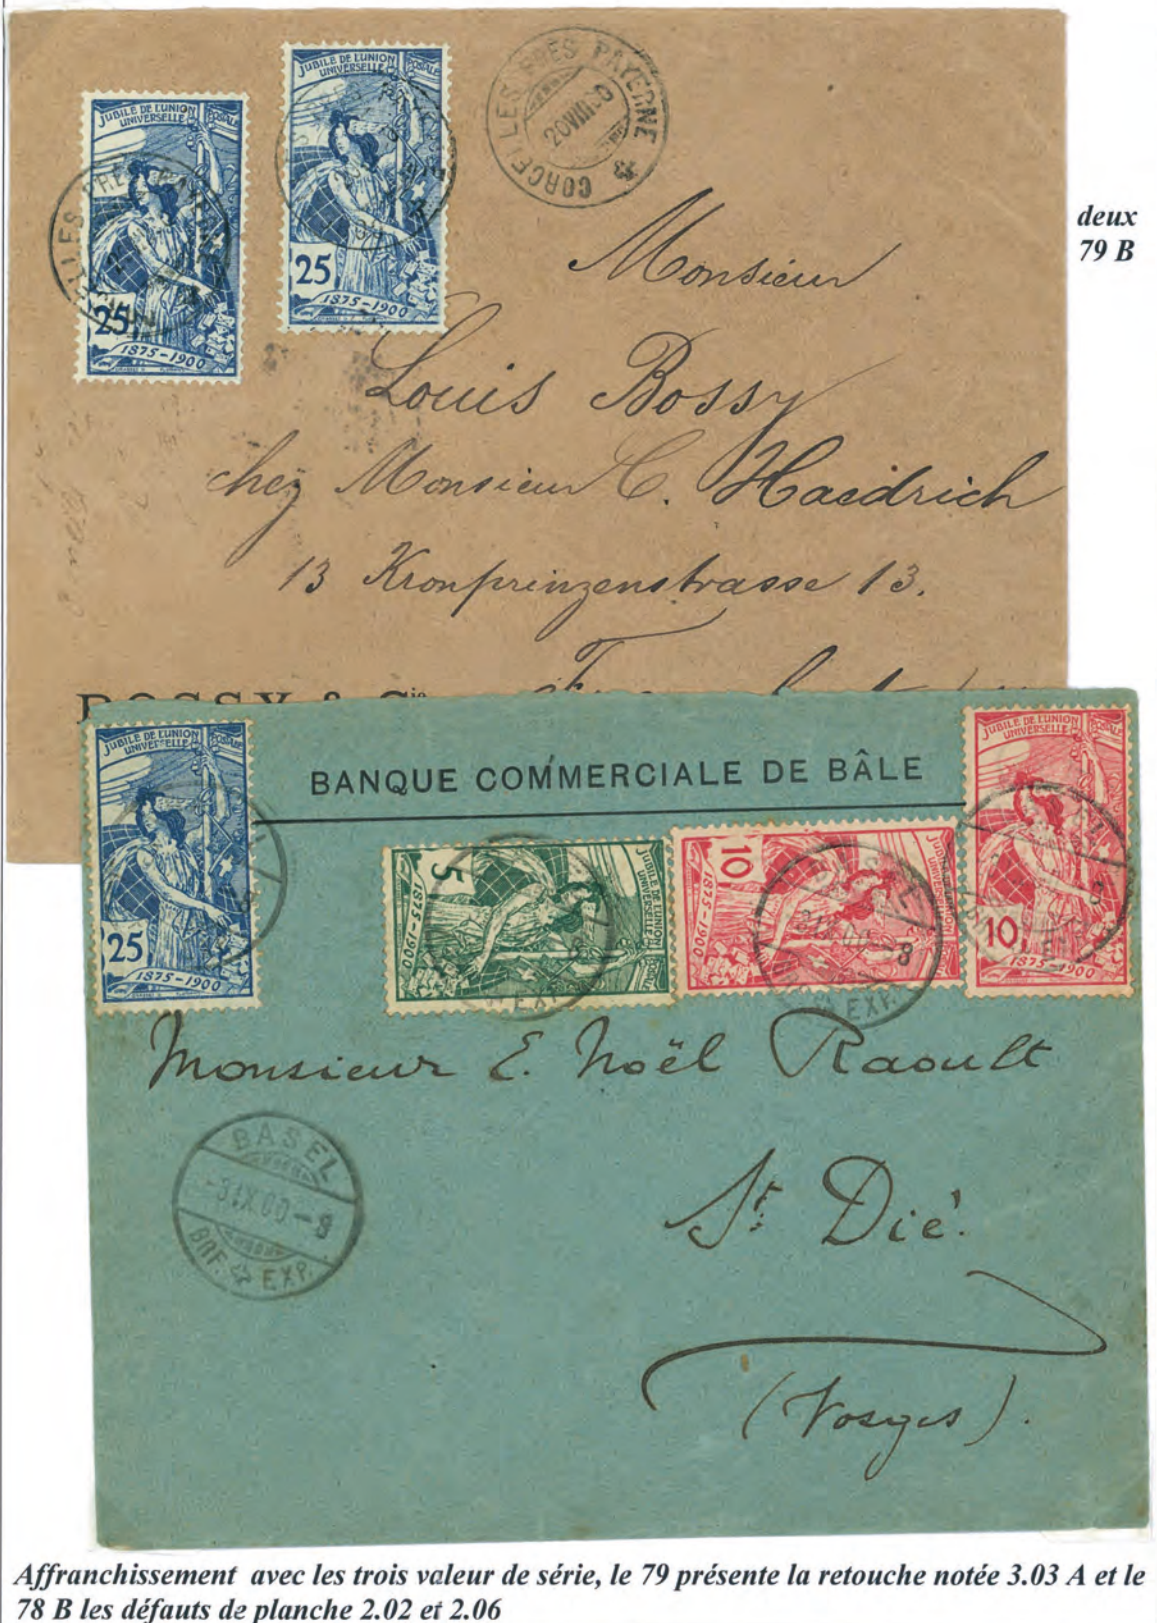 JUBILÉ DE L'UNION POSTALE
UNIVERSELLE
25
1875-1900
JUBILÉ DE L'UNION POSTALE
UNIVERSELLE
25
1875-1900
CORCELLES PRES PAYERNE
20 VIII 00
deux
79 B
Monsieur
Louis Bossy
chez Monsieur C. Haedrich
13 Kronprinzenstrasse 13.
BOSSY & Cie
JUBILÉ DE L'UNION POSTALE
UNIVERSELLE
25
1875-1900
BANQUE COMMERCIALE DE BÂLE
JUBILÉ DE L'UNION
UNIVERSELLE
5
1875-1900
JUBILÉ DE L'UNION
UNIVERSELLE
10
1875-1900
JUBILÉ DE L'UNION POSTALE
UNIVERSELLE
10
1875-1900
Monsieur E. Noël Raoult
BASEL
-3 IX 00-8
BRF. EXP.
St Dié.
(Vosges).
Affranchissement avec les trois valeur de série, le 79 présente la retouche notée 3.03 A et le
78 B les défauts de planche 2.02 et 2.06